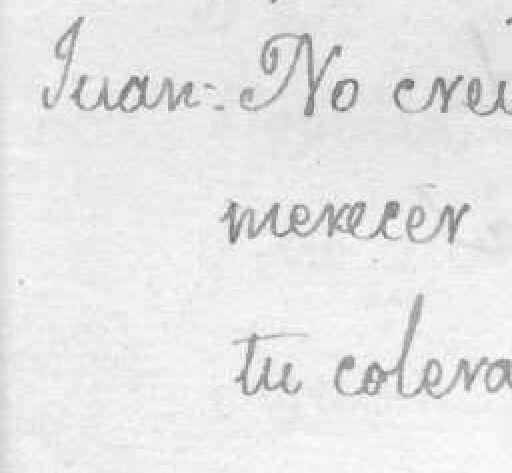 Juan: No crei
merecer
tu colera